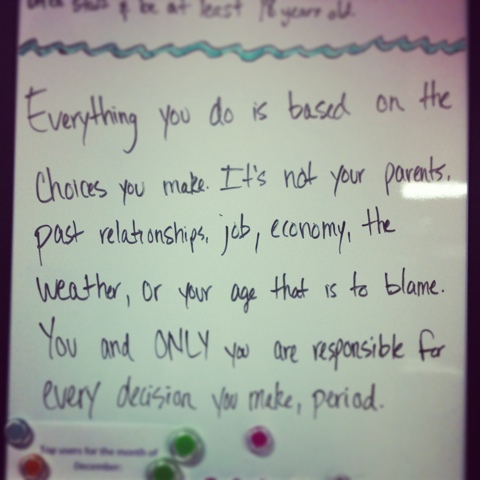 & be at least 18 years old.
Everything you do is based on the
Choices you make. It's not your parents,
past relationships, job, economy, the
weather, or your age that is to blame.
You and ONLY you are responsible for
every decision you make, period.
Top users for the month of
December: